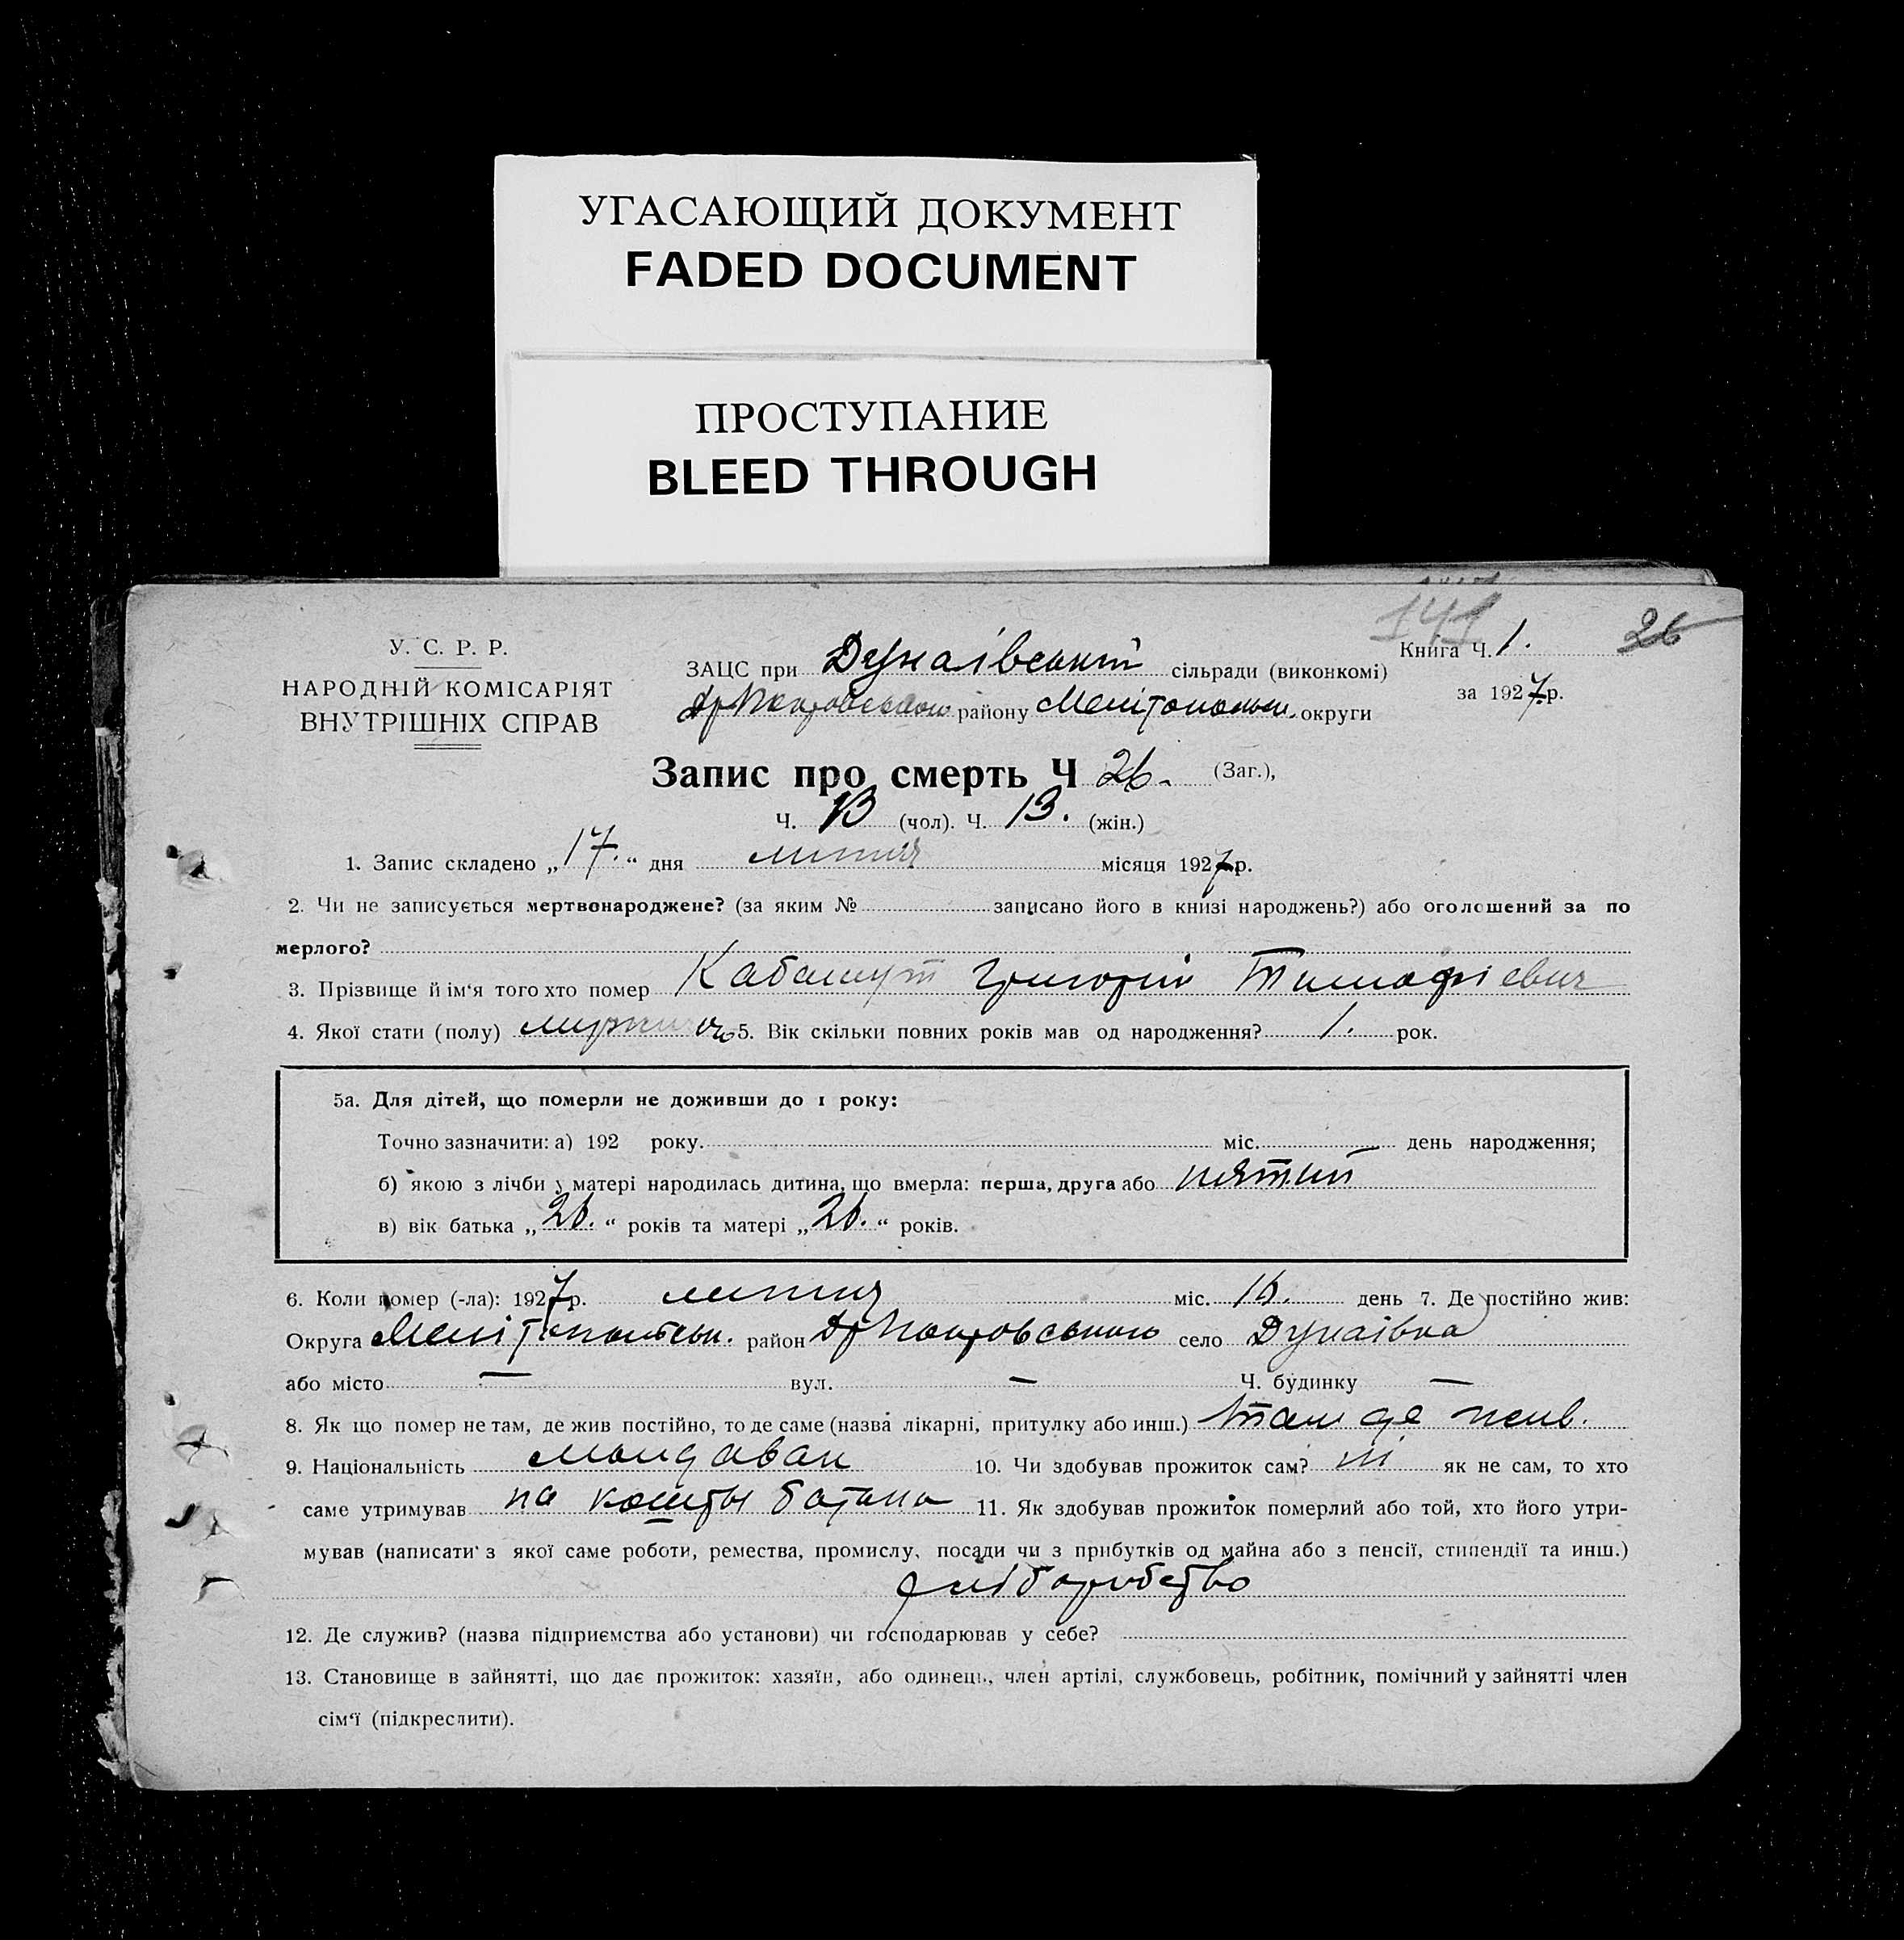 УГАСАЮЩИЙ ДОКУМЕНТ
FADED DOCUMENT
ПРОСТУПАНИЕ
BLEED THROUGH
141
26
У. С. Р. Р.
НАРОДНІЙ КОМІСАРІЯТ
ВНУТРІШНІХ СПРАВ
Книга Ч. 1.
ЗАЦС при Дунаївський сільради (виконкомі)
за 1927 р.
Др Покровського району Мелітопольськ. округи
Запис про смерть Ч 26. (Заг.),
Ч. 13 (чол). Ч. 13. (жін.)
1. Запис складено „17.“ дня липня місяця 1927 р.
2. Чи не записується мертвонароджене? (за яким № записано його в книзі народжень?) або оголошений за по
мерлого?
3. Прізвище й ім‘я того хто помер Григорій Тимофієвич
4. Якої стати (полу) 5. Вік скільки повних років мав од народження? 1. рок.
5а. Для дітей, що померли не доживши до 1 року:
Точно зазначити: а) 192 року. міс. день народження;
б) якою з лічби у матері народилась дитина, що вмерла: перша, друга або пятий
в) вік батька „26.“ років та матері „26.“ років.
6. Коли помер (-ла): 1927 р. липня міс. 16. день 7. Де постійно жив:
Округа Мелітопольськ. район Др Покровського село Дунаївка
або місто — вул. — Ч. будинку —
8. Як що помер не там, де жив постійно, то де саме (назва лікарні, притулку або инш.) там де жив.
9. Національність молдаван 10. Чи здобував прожиток сам? ні як не сам, то хто
саме утримував на кошты батька 11. Як здобував прожиток померлий або той, хто його утри-
мував (написати з якої саме роботи, ремества, промислу, посади чи з прибутків од майна або з пенсії, стипендії та инш.)
хліборобство
12. Де служив? (назва підприємства або установи) чи господарював у себе?
13. Становище в зайнятті, що дає прожиток: хазяїн, або одинець, член артілі, службовець, робітник, помічний у зайнятті член
сім‘ї (підкреслити).